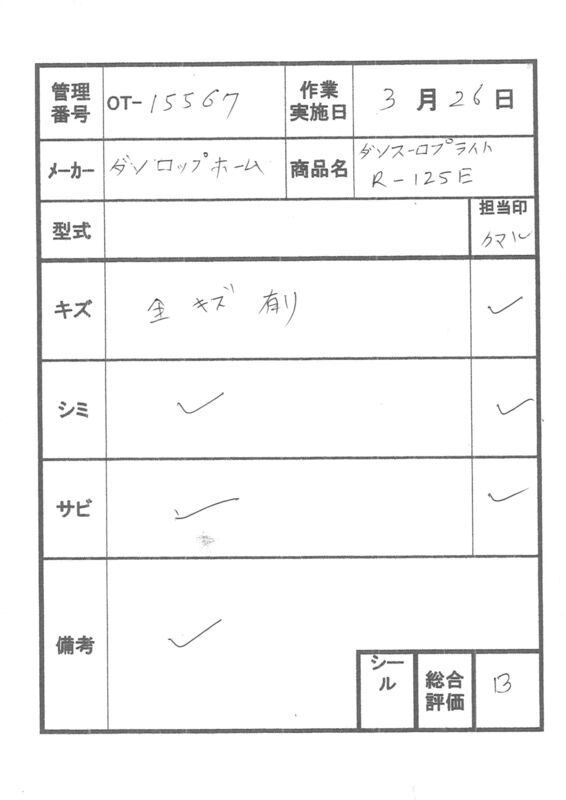 管理番号 OT-15567 作業実施日 3月26日
メーカー ダンロップホーム 商品名 ダンスロープライト
R-125E
型式 担当印
クマル
キズ 全 キズ 有り ✓
シミ ✓ ✓
サビ ✓ ✓
備考 ✓
シール 総合評価 B